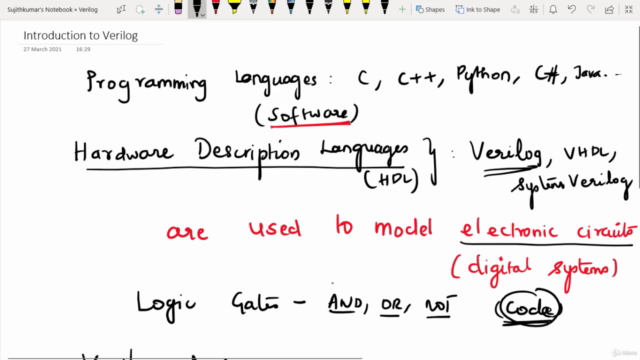 Sujithkumar's Notebook » Verilog
Shapes
Ink to Shape
Introduction to Verilog
27 March 2021 16:29
Programming Languages : C, C++, Python, C#, Java...
(Software)
Hardware Description Languages } : Verilog, VHDL,
(HDL) System Verilog
are used to model electronic circuits
(digital systems)
Logic Gates - AND, OR, NOT Code